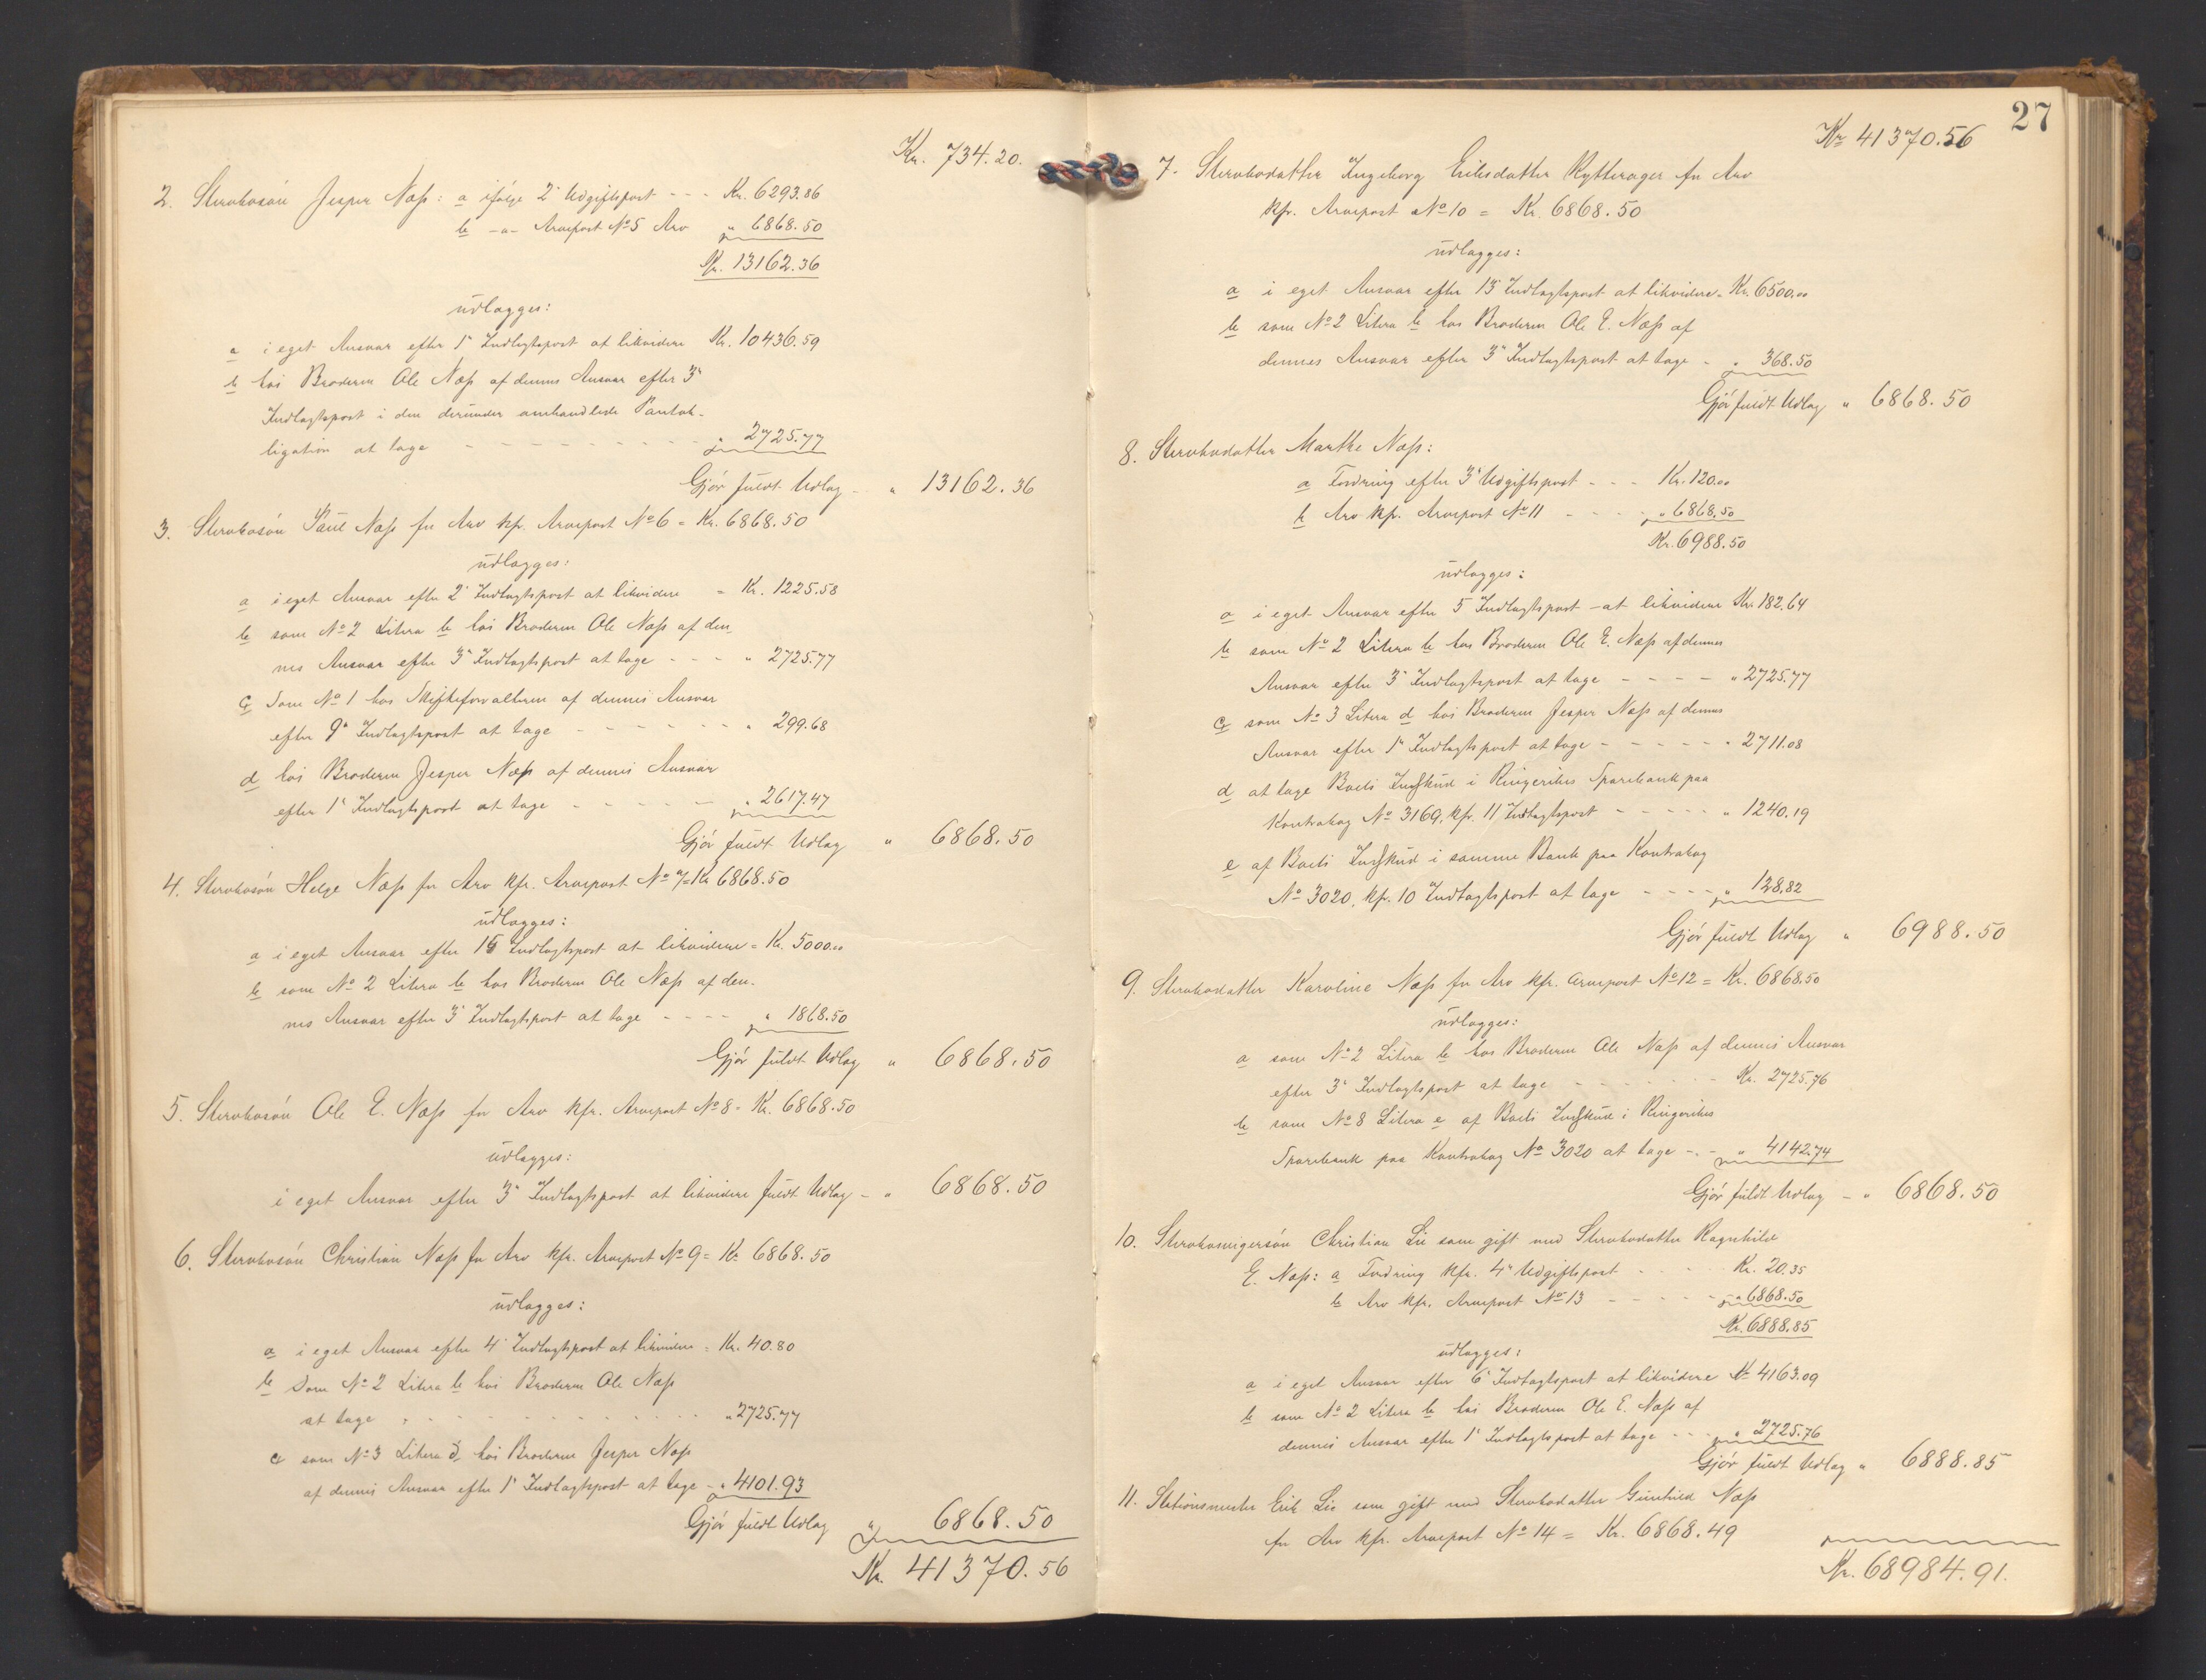 Kr. 734.20.
2. Stervbosön Jesper Næss: a ifølge 2' Udgiftspost - - - Kr. 6293.86
b -„- Arvepost No 5 Arv „ 6868.50
Kr. 13162.36
udlægges:
a i eget Ansvar efter 1' Indtægtspost at likvidere Kr. 10436.59
b hos Broderen Ole Næss af dennes Ansvar efter 3'
Indtægtspost i den derunder omhandlede Pantob-
ligation at tage - - - - „ 2725.77
Gjør fuldt Udlæg - „ 13162.36
3. Stervbosön Paul Næss for Arv kfr. Arvepost No 6 = Kr. 6868.50
udlægges:
a i eget Ansvar efter 2' Indtægtspost at likvidere = Kr. 1225.58
b som No 2 Litera b hos Broderen Ole Næss af den-
nes Ansvar efter 3' Indtægtspost at tage - - - „ 2725.77
c Som No 1 hos Skifteforvalteren af dennes Ansvar
efter 9' Indtægtspost at tage - - - - „ 299.68
d hos Broderen Jesper Næss af dennes Ansvar
efter 1' Indtægtspost at tage - - - - „ 2617.47
Gjør fuldt Udlæg „ 6868.50
4. Stervbosön Helge Næss for Arv kfr. Arvepost No 7 = Kr 6868.50
udlægges:
a i eget Ansvar efter 15 Indtægtspost at likvidere = Kr. 5000.00
b som No 2 Litera b hos Broderen Ole Næss af den-
nes Ansvar efter 3' Indtægtspost at tage - - - - „ 1868.50
Gjør fuldt Udlæg „ 6868.50
5. Stervbosön Ole E. Næss for Arv kfr. Arvepost No 8 = Kr. 6868.50
udlægges:
i eget Ansvar efter 3' Indtægtspost at likvidere fuldt Udlæg - „ 6868.50
6. Stervbosön Christian Næss for Arv kfr. Arvepost No 9 = Kr 6868.50
udlægges:
a i eget Ansvar efter 4' Indtægtspost at likvidere = Kr. 40.80
b Som No 2 Litera b hos Broderen Ole Næss
at tage - - - - „ 2725.77
c som No 3 Litera d hos Broderen Jesper Næss
af dennes Ansvar efter 1' Indtægtspost at tage - „ 4101.93
Gjør fuldt Udlæg „ 6868.50
Kr. 41370.56
27
Kr 41370.56
7. Stervbodatter Ingeborg Eriksdatter Rytterager for Arv
kfr. Arvepost No 10 = Kr. 6868.50
udlægges:
a i eget Ansvar efter 13' Indtægtspost at likvidere = Kr. 6500.00
b som No 2 Litera b hos Broderen Ole E. Næss af
dennes Ansvar efter 3' Indtægtspost at tage - „ 368.50
Gjør fuldt Udlæg „ 6868.50
8. Stervbodatter Marthe Næss:
a Fordring efter 3' Udgiftspost - - - Kr. 120.00
b Arv kfr. Arvepost No 11 - - - - „ 6868.50
Kr. 6988.50
udlægges:
a i eget Ansvar efter 5 Indtægtspost - at likvidere Kr. 182.64
b som No 2 Litera b hos Broderen Ole E. Næss af dennes
Ansvar efter 3' Indtægtspost at tage - - - - „ 2725.77
c som No 3 Litera d hos Broderen Jesper Næss af dennes
Ansvar efter 1' Indtægtspost at tage - - - - - „ 2711.08
d at tage Boets Indskud i Ringerikes Sparebank paa
Kontrabog No 3169, kfr. 11 Indtægtspost - - - - „ 1240.19
e af Boets Indskud i samme Bank paa Kontrabog
No 3020, kfr. 10 Indtægtspost at tage - - - - „ 128.82
Gjør fuldt Udlæg „ 6988.50
9. Stervbodatter Karoline Næss for Arv kfr. Arvepost No 12 = Kr. 6868.50
udlægges:
a som No 2 Litera b hos Broderen Ole Næss af dennes Ansvar
efter 3' Indtægtspost at tage - - - - Kr. 2725.76
b som No 8 Litera e af Boets Indskud i Ringerikes
Sparebank paa Kontrabog No 3020 at tage - - „ 4142.74
Gjør fuldt Udlæg - „ 6868.50
10. Stervbosvigersön Christian Lie som gift med Stervbodatter Ragnhild
E. Næss: a Fordring kfr. 4' Udgiftspost - - - Kr. 20.35
b Arv kfr. Arvepost No 13 - - - - - „ 6868.50
Kr. 6888.85
udlægges:
a i eget Ansvar efter 6' Indtægtspost at likvidere Kr 4163.09
b som No 2 Litera b hos Broderen Ole E. Næss af
dennes Ansvar efter 1' Indtægtspost at tage - - - „ 2725.76
Gjør fuldt Udlæg „ 6888.85
11. Stationsmester Erik Lie som gift med Stervbodatter Gunhild Næss
for Arv kfr. Arvepost No 14 = Kr. 6868.49
Kr. 68984.91.